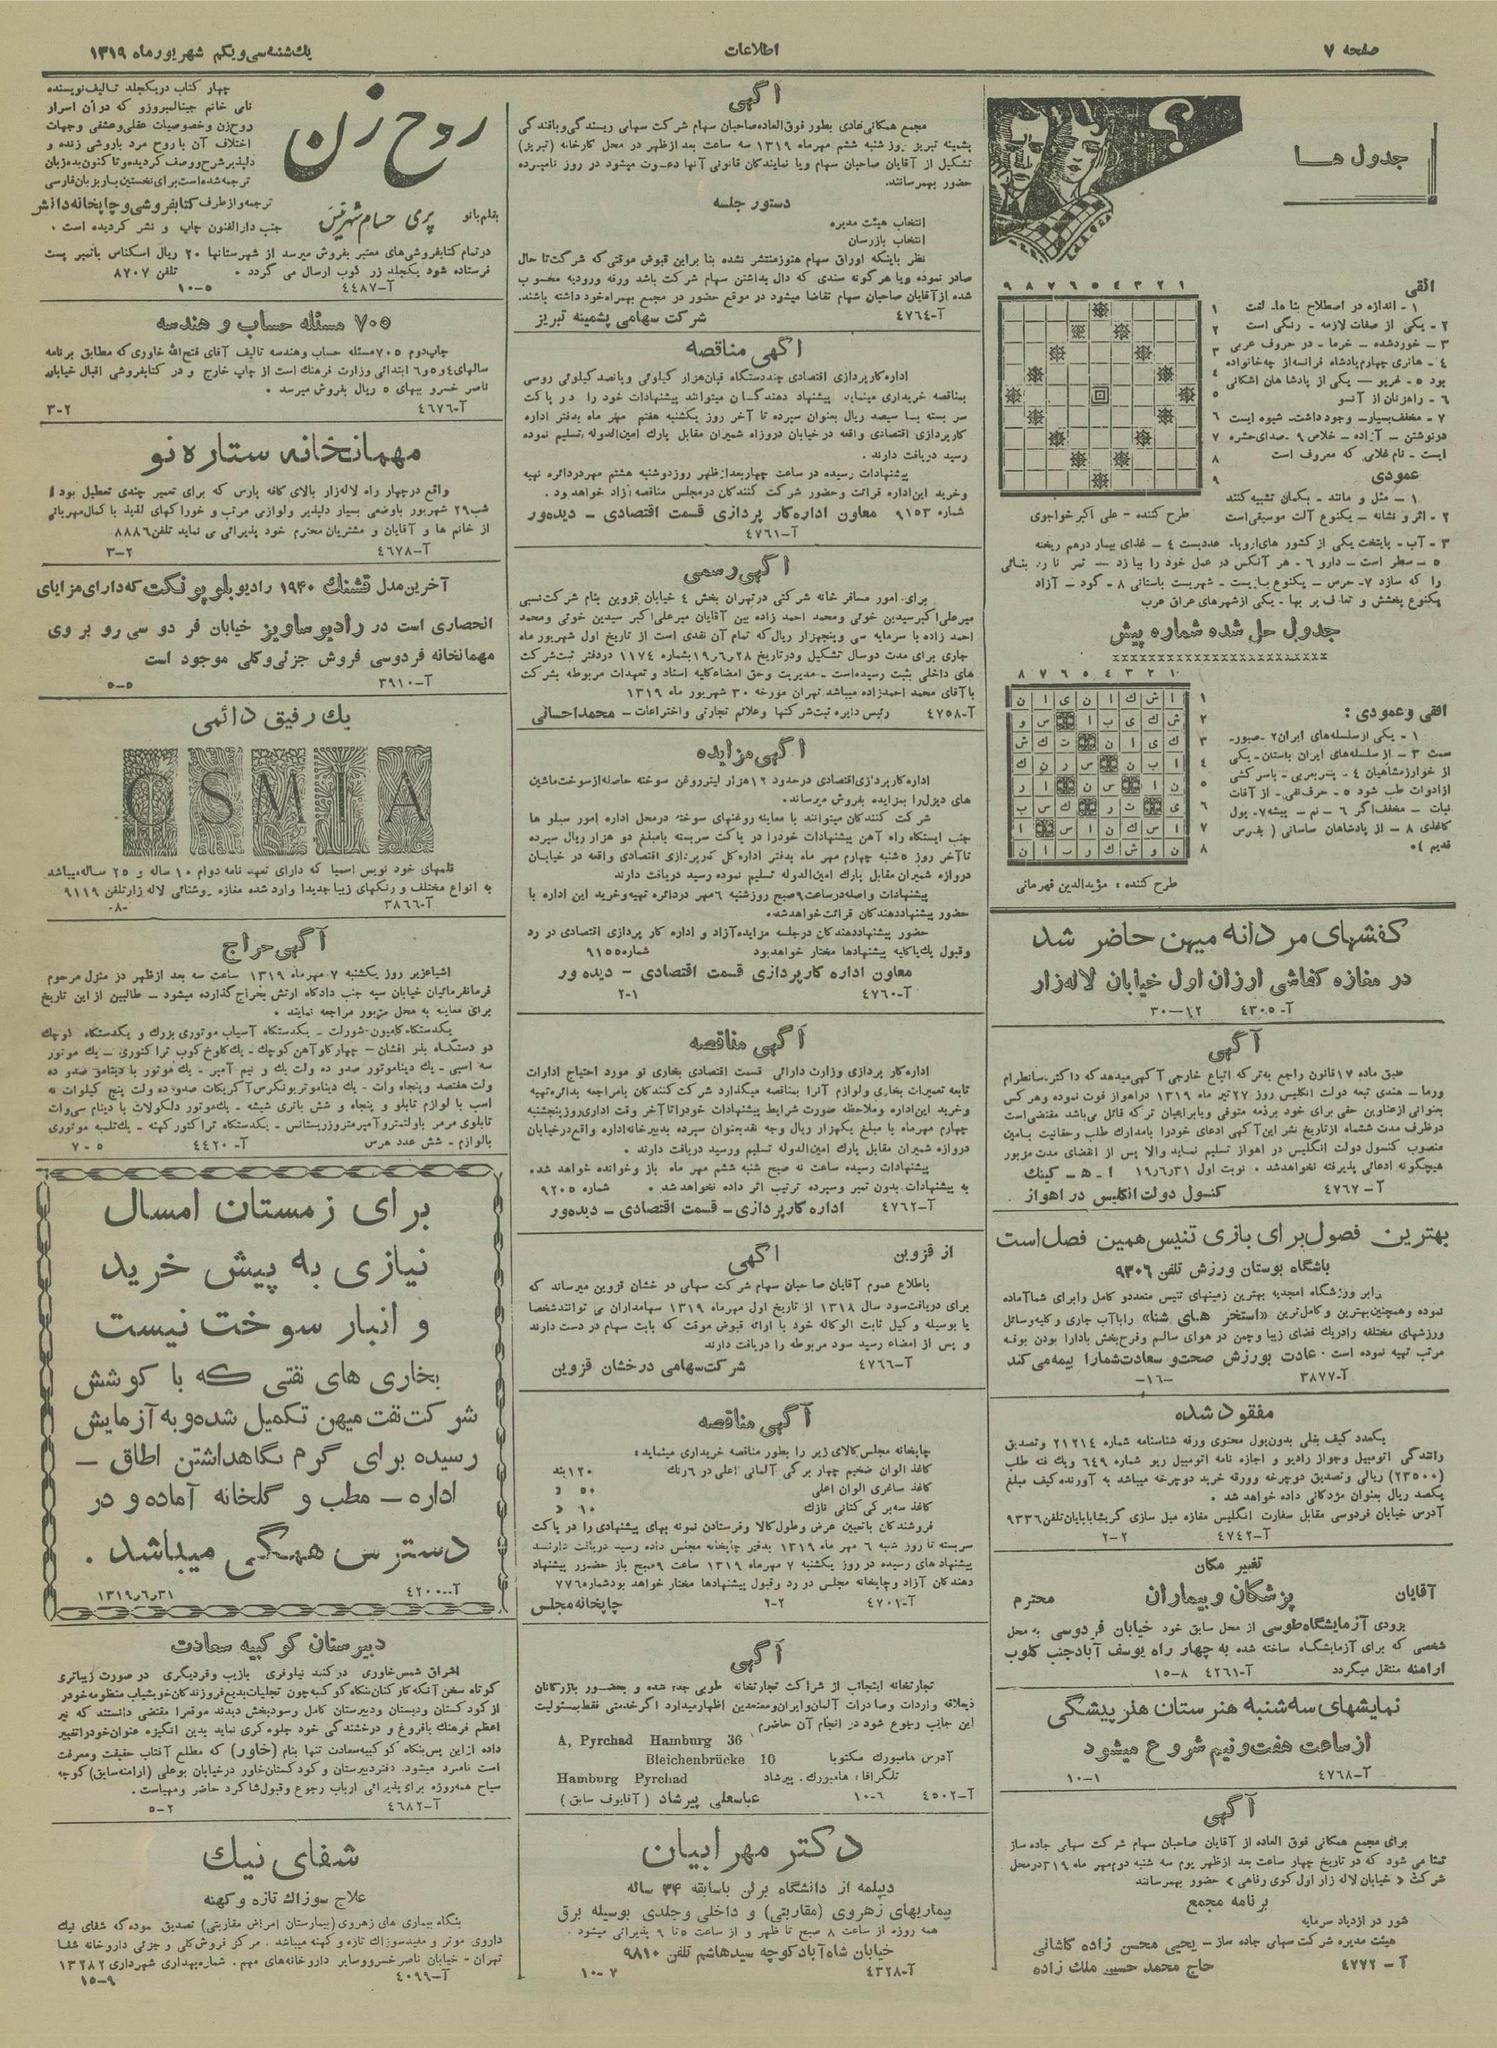 صفحه ۷
اطلاعات
یك‌شنبه سی‌ویکم شهریور ماه ۱۳۱۹
جدول ها
؟
افقی
۱ - اندازه در اصطلاح بنا ها. لغت
۲ - یکی از صفات لازمه - رنگی است
۳ - خوردشده - خرما - در حروف عربی
۴ - هانری چهارم پادشاه فرانسه از چه خانواده
بود ۵ - غریو - یکی از پادشاهان اشکانی
۶ - راهزنان از آنسو
۷ - مخفف بسیار - وجود داشت - شیوه ایست
درنوشتن - آزاده - خلاص ۹ - صدای حشره
ایست - نام غلامی که معروف است
عمودی
۱ - مثل و مانند - بکمان تشبیه کنند
۲ - اثر و نشانه - یکنوع آلت موسیقی است
۳ - آب - پایتخت یکی از کشور های اروپا. عدد بست ۴ - غذای بیمار درهم ریخته
۵ - سطر است - دارو ۶ - هر آنکس در عمل خود را ببازد
طرح کننده - علی اکبر خواجوی
جدول حل شده شماره پیش
افقی و عمودی :
۱ - یکی از سلسله های ایران ۲ - صبور -
سمت ۳ - از سلسله های ایران باستان - یکی
از خوارزمشاهیان ۴ - پسر بعربی - باسر کشی
از ادوات طب شود ۵ - حرف نفی - از آفات
نبات - مخفف اگر ۶ - نم - پیشه ۷ - پول
کاغذی ۸ - از پادشاهان ساسانی ( بفرس
قدیم )
طرح کننده : مؤیدالدین قهرمانی
کفشهای مردانه میهن حاضر شد
در مغازه کفاشی ارزان اول خیابان لاله زار
آ - ۴۳۰۵ ۱۲ - ۳۰
آگهی
طبق ماده ۱۷ قانون راجع به ترکه اتباع خارجی آگهی میدهد که داکتر سانطرام
ورما - هندی تبعه دولت انگلیس روز ۲۷ تیر ماه ۱۳۱۹ در اهواز فوت نموده و هر کس
بعنوانی از عناوین حقی برای خود برذمه متوفی و یا برایشان ترکه قائل می باشد مقتضی است
در ظرف مدت ششماه از تاریخ نشر این آگهی ادعای خود را با مدارك طلب و حقانیت بامین
منصوب کنسول دولت انگلیس در اهواز تسلیم نماید والا پس از انقضای مدت مزبور
هیچگونه ادعائی پذیرفته نخواهد شد . نوبت اول ۱۹/۶/۳۱ ا - ه - کینك
آ - ۴۷۶۷ کنسول دولت انگلیس در اهواز
بهترین فصول برای بازی تنیس همین فصل است
باشگاه بوستان ورزش تلفن ۹۳۰۶
برابر ورزشگاه امجدیه بهترین زمینهای تنیس متعدد و کامل را برای شما آماده
نموده و همچنین بهترین و کامل‌ترین «استخر های شنا» را با آب جاری و کلیه وسائل
ورزشهای مختلفه را در یك فضای زیبا و چمن در هوای سالم و فرح بخش با دارا بودن بوفه
مرتب تهیه نموده است . عادت بورزش صحت و سعادت شمارا بیمه می کند
آ - ۳۸۷۷ - ۱۶ -
مفقود شده
یکعدد کیف بغلی بدون پول محتوی ورقه شناسنامه شماره ۲۱۲۱۴ و تصدیق
رانندگی اتومبیل و جواز رادیو و اجازه نامه اتومبیل ریو شماره ۶۴۹ و یك فته طلب
(۲۳۵۰۰) ریالی و تصدیق دوچرخه و ورقه خرید دوچرخه میباشد به آورنده کیف مبلغ
یکصد ریال بعنوان مژدگانی داده خواهد شد .
آدرس خیابان فردوسی مقابل سفارت انگلیس مغازه مبل سازی تلفن ۹۳۳۶
آ - ۴۷۴۲ ۲ - ۲
تغییر مکان
آقایان پزشگان و بیماران محترم
بزودی آزمایشگاه طوسی از محل سابق خود خیابان فردوسی به محل
شخصی که برای آزمایشگاه ساخته شده به چهار راه یوسف آباد جنب کلوب
ارامنه منتقل میگردد آ - ۴۲۶۱ ۸ - ۱۵
نمایشهای سه شنبه هنرستان هنرپیشگی
از ساعت هفت و نیم شروع میشود
آ - ۴۷۶۸ ۱ - ۱۰
آگهی
برای مجمع همگانی فوق العاده از آقایان صاحبان سهام شرکت سهامی جاده ساز
تمنا می شود که در تاریخ چهار ساعت بعد از ظهر یوم سه شنبه دوم مهر ماه ۳۱۹ در محل
شرکت « خیابان لاله زار اول کوی رفاهی » حضور بهمرسانند
برنامه مجمع
شور در ازدیاد سرمایه
هیئت مدیره شرکت سهامی جاده ساز - یحیی محسن زاده کاشانی
آ - ۴۷۷۲ حاج محمد حسین ملك زاده
آگهی
مجمع همگانی عادی بطور فوق العاده صاحبان سهام شرکت سهامی ریسندگی و بافندگی
پشمینه تبریز روز شنبه ششم مهرماه ۱۳۱۹ سه ساعت بعد از ظهر در محل کارخانه (تبریز)
تشکیل از آقایان صاحبان سهام و یا نمایندگان قانونی آنها دعوت میشود در روز نامبرده
حضور بهمرسانند.
دستور جلسه
انتخاب هیئت مدیره
انتخاب بازرسان
نظر باینکه اوراق سهام هنوز منتشر نشده بنا براین قبوض موقتی که شرکت تا حال
صادر نموده و یا هر گونه سندی که دال بداشتن سهام شرکت باشد ورقه ورودیه محسوب
شده از آقایان صاحبان سهام تقاضا میشود در موقع حضور در مجمع بهمراه خود داشته باشند.
آ - ۴۷۶۴ شرکت سهامی پشمینه تبریز
آگهی مناقصه
اداره کارپردازی اقتصادی چند دستگاه قپان هزار کیلوئی و پانصد کیلوئی روسی
بمناقصه خریداری مینماید. پیشنهاد دهندگان میتوانند پیشنهادات خود را در پاکت
سر بسته با سیصد ریال بعنوان سپرده تا آخر روز یکشنبه هفتم مهر ماه بدفتر اداره
کارپردازی اقتصادی واقعه در خیابان دروازه شمیران مقابل پارك امین‌الدوله تسلیم نموده
رسید دریافت دارند .
پیشنهادات رسیده در ساعت چهار بعد از ظهر روز دوشنبه هشتم مهر در دائره تهیه
و خرید این اداره قرائت و حضور شرکت کنندگان در مجلس مناقصه آزاد خواهد بود .
شماره ۹۱۵۳ معاون اداره کار پردازی قسمت اقتصادی - دیده‌ور
آ - ۴۷۶۱
آگهی رسمی
برای امور مسافر خانه شرکتی در تهران بخش ۴ خیابان قزوین بنام شرکت نسبی
میرعلی اکبر سیدین خوئی و محمد احمد زاده بین آقایان میرعلی اکبر سیدین خوئی و محمد
احمد زاده با سرمایه سی و پنجهزار ریال که تمام آن نقدی است از تاریخ اول شهریور ماه
جاری برای مدت دو سال تشکیل و در تاریخ ۱۹/۶/۲۸ بشماره ۱۱۷۴ در دفتر ثبت شرکت
های داخلی بثبت رسیده است - مدیریت و حق امضاء کلیه اسناد و تعهدات مربوطه بشرکت
با آقای محمد احمدزاده میباشد. تهران مورخه ۳۰ شهریور ماه ۱۳۱۹
آ - ۴۷۵۸ رئیس دایره ثبت شرکتها و علائم تجارتی و اختراعات - محمد احسانی
آگهی مزایده
اداره کارپردازی اقتصادی در حدود ۱۲ هزار لیتر روغن سوخته حاصله از سوخت ماشین
های دیزل را بمزایده بفروش میرساند.
شرکت کنندگان میتوانند با معاینه روغنهای سوخته در محل اداره امور سیلو ها
جنب ایستگاه راه آهن پیشنهادات خود را در پاکت سربسته بامبلغ دو هزار ریال سپرده
تا آخر روز ۵شنبه چهارم مهر ماه بدفتر اداره کل کارپردازی اقتصادی واقعه در خیابان
دروازه شمیران مقابل پارك امین الدوله تسلیم نموده رسید دریافت دارند
پیشنهادات واصله در ساعت ۹ صبح روز شنبه ۶ مهر در دائره تهیه و خرید این اداره با
حضور پیشنهاد دهندگان قرائت خواهد شد.
حضور پیشنهاد دهندگان در جلسه مزایده آزاد و اداره کار پردازی اقتصادی در رد
و قبول یك یا کلیه پیشنهادها مختار خواهد بود شماره ۹۱۵۵
معاون اداره کارپردازی قسمت اقتصادی - دیده ور
آ - ۴۷۶۰ ۱ - ۲
آگهی مناقصه
اداره کار پردازی وزارت دارائی قسمت اقتصادی بخاری نو مورد احتیاج ادارات
تابعه تعمیرات بخاری و لوازم آنرا بمناقصه میگذارد شرکت کنندگان با مراجعه بدائره تهیه
و خرید این اداره و ملاحظه صورت شرایط پیشنهادات خود را تا آخر وقت اداری روز پنجشنبه
چهارم مهرماه با مبلغ یکهزار ریال وجه نقد بعنوان سپرده بدبیرخانه اداره واقع در خیابان
دروازه شمیران مقابل پارك امین الدوله تسلیم و رسید دریافت دارند .
پیشنهادات رسیده ساعت نه صبح شنبه ششم مهر ماه باز و خوانده خواهد شد.
به پیشنهادات بدون تمبر و سپرده ترتیب اثر داده نخواهد شد . شماره ۹۲۰۵
آ - ۴۷۶۲ اداره کارپردازی - قسمت اقتصادی - دیده‌ور
از قزوین آگهی
باطلاع عموم آقایان صاحبان سهام شرکت سهامی درخشان قزوین میرساند که
برای دریافت سود سال ۱۳۱۸ از تاریخ اول مهرماه ۱۳۱۹ سهامداران می توانند شخصا
یا بوسیله وکیل ثابت الوکاله خود با ارائه قبوض موقت که بابت سهام در دست دارند
و پس از امضاء رسید سود مربوطه را دریافت دارند
آ - ۴۷۶۶ شرکت سهامی درخشان قزوین
آگهی مناقصه
چاپخانه مجلس کالای زیر را بطور مناقصه خریداری مینماید:
کاغذ الوان ضخیم چهار برگی آلمانی اعلی در ۶ رنك ۱۲۰ بند
کاغذ ساغری الوان اعلی ۵۰ »
کاغذ سه برگی کتانی نازك ۶۰ »
فروشندگان باتعیین عرض و طول کالا و فرستادن نمونه بهای پیشنهادی را در پاکت
سربسته تا روز شنبه ۶ مهر ماه ۱۳۱۹ بدفتر چاپخانه مجلس داده رسید دریافت دارند
پیشنهاد های رسیده در روز یکشنبه ۷ مهرماه ۱۳۱۹ ساعت ۹ صبح باز حضور پیشنهاد
دهندگان آزاد و چاپخانه مجلس در رد و قبول پیشنهادها مختار خواهد بود شماره ۷۷۶
آ - ۴۷۰۱ ۲ - ۲ چاپخانه مجلس
آگهی
تجارتخانه اینجانب از شراکت تجارتخانه طوبی جدا شده و بحضور بازرگانان
ذیعلاقه واردات و صادرات آلمان و ایران و معتمدین اظهار میدارد اگر خدمتی فقط بمسئولیت
این جانب رجوع شود در انجام آن حاضرم
A, Pyrchad Hamburg 36
آدرس هامبورك مکتوبا Bleichenbrücke 10
تلگرافا : هامبورك . پیرشاد Hamburg Pyrchad
آ - ۴۵۰۲ ۶ - ۱۰ عباسعلی پیرشاد ( آقایوف سابق )
دکتر مهرابیان
دیپلمه از دانشگاه برلن باسابقه ۳۴ ساله
بیماریهای زهروی (مقاربتی) و داخلی و جلدی بوسیله برق
همه روزه از ساعت ۸ صبح تا ظهر و از ساعت ۵ تا ۹ پذیرائی میشود .
خیابان شاه آباد کوچه سیدهاشم تلفن ۹۸۱۰
آ - ۴۳۲۸ ۷ - ۱۰
روح زن
چهار کتاب در یکجلد تالیف نویسنده
نامی خانم جینالمبروزو که در آن اسرار
روح زن و خصوصیات عقلی و عشقی و جهات
اختلاف آن با روح مرد باروشی زنده و
دلپذیر شرح و وصف گردیده و تا کنون بده زبان
ترجمه شده است برای نخستین بار بزبان فارسی
ترجمه و از طرف کتابفروشی و چاپخانه دانش
جنب دارالفنون چاپ و نشر گردیده است .
بقلم بانو پری حسام شهرئیس
در تمام کتابفروشی های معتبر بفروش میرسد از شهرستانها ۲۰ ریال اسکناس یا تمبر پست
فرستاده شود یکجلد زر کوب ارسال می گردد . تلفن ۸۷۰۷
آ - ۴۴۸۷ ۵ - ۱۰
۷۰۵ مسئله حساب و هندسه
چاپ دوم ۷۰۵ مسئله حساب و هندسه تالیف آقای فتح الله خاوری که مطابق برنامه
سالهای ۴ و ۵ و ۶ ابتدائی وزارت فرهنك است از چاپ خارج و در کتابفروشی اقبال خیابان
ناصر خسرو ببهای ۵ ریال بفروش میرسد .
آ - ۴۶۷۶ ۲ - ۳
مهمانخانه ستاره نو
واقع در چهار راه لاله‌زار بالای کافه پارس که برای تعمیر چندی تعطیل بود از
شب ۲۹ شهریور باوضعی بسیار دلپذیر و لوازمی مرتب و خوراکهای لذیذ با کمال مهربانی
از خانم ها و آقایان و مشتریان محترم خود پذیرائی می نماید تلفن ۸۸۸۶
آ - ۴۶۷۸ ۲ - ۳
آخرین مدل قشنك ۱۹۴۰ رادیو بلوپونگت که دارای مزایای
انحصاری است در رادیو ساویز خیابان فردوسی روبروی
مهمانخانه فردوسی فروش جزئی و کلی موجود است
آ - ۳۹۱۰ ۵ - ۵
یك رفیق دائمی
OSMIA
قلمهای خود نویس اسمیا که دارای تعهد نامه دوام ۱۰ ساله و ۲۵ ساله میباشد
به انواع مختلف و رنگهای زیبا جدیدا وارد شده مغازه روشنائی لاله زار تلفن ۹۱۱۹
آ - ۳۸۶۶ - ۸ -
آگهی حراج
اشیاء زیر روز یکشنبه ۷ مهرماه ۱۳۱۹ ساعت سه بعد از ظهر در منزل مرحوم
فرمانفرمائیان خیابان سپه جنب دادگاه ارتش بحراج گذارده میشود - طالبین از این تاریخ
برای معاینه به محل مزبور مراجعه نمایند .
یکدستگاه کامیون شورلت - یکدستگاه آسیاب موتوری بزرك و یکدستگاه کوچك
دو دستگاه بذر افشان - چهار گاو آهن کوچك - یك کلوخ کوب تراکتوری - یك موتور
سه اسبی - یك دیناموتور صدو ده ولت یك و نیم آمپر - یك موتور با دینامو صدو ده
ولت هفتصد و پنجاه وات - یك دیناموتور
اسب با لوازم تابلو و پنجاه و شش باتری شیشه - یك موتور دلکولات با دینام سی وات
تابلوی مرمر باولتمتر و آمپرمتر و رزیستانس - یکدستگاه تراکتور کهنه - یك تلمبه موتوری
بالوازم - شش عدد هرس آ - ۴۴۲۰ ۵ - ۷
برای زمستان امسال
نیازی به پیش خرید
و انبار سوخت نیست
بخاری های نفتی که با کوشش
شرکت نفت میهن تکمیل شده و به آزمایش
رسیده برای گرم نگاهداشتن اطاق -
اداره - مطب و گلخانه آماده و در
دسترس همگی میباشد .
آ - ۴۲۰۰ ۱۳۱۹٫۶٫۳۱
دبیرستان کوکبیه سعادت
اشراق شمس خاوری در گنبد نیلوفری بازیب و فردیگری در صورت زیباتری
کوتاه سخن آنکه کارکنان بنگاه کوکبیه چون تجلیات بدیع فروزندگان خویشیاب منظومه خود در
از کودکستان و دبستان و دبیرستان کامل و سودبخش دیدند موقع را مقتضی دانستند که نیر
اعظم فرهنك بافروغ و درخشندگی خود جلوه گری نماید بدین انگیزه عنوان خود را تغییر
داده از این پس بنگاه کوکبیه سعادت تنها بنام (خاور) که مطلع آفتاب حقیقت و معرفت
است نامبرد میشود. دفتر دبیرستان و کودکستان خاور در خیابان بوعلی (ارامنه سابق) کوچه
سیاح همه روزه برای پذیرائی ارباب رجوع و قبول شاگرد حاضر و مهیاست.
آ - ۴۶۸۲ ۲ - ۵
شفای نیك
علاج سوزاك تازه و کهنه
بنگاه بیماری های زهروی (بیمارستان امراض مقاربتی) تصدیق نموده که شفای نیك
داروی موثر و مفید سوزاك تازه و کهنه میباشد . مرکز فروش کلی و جزئی داروخانه شفا
تهران - خیابان ناصر خسرو و سایر داروخانه های مهم . شماره بهداری شهرداری ۱۳۲۸۲
آ - ۴۰۹۹ ۹ - ۱۵